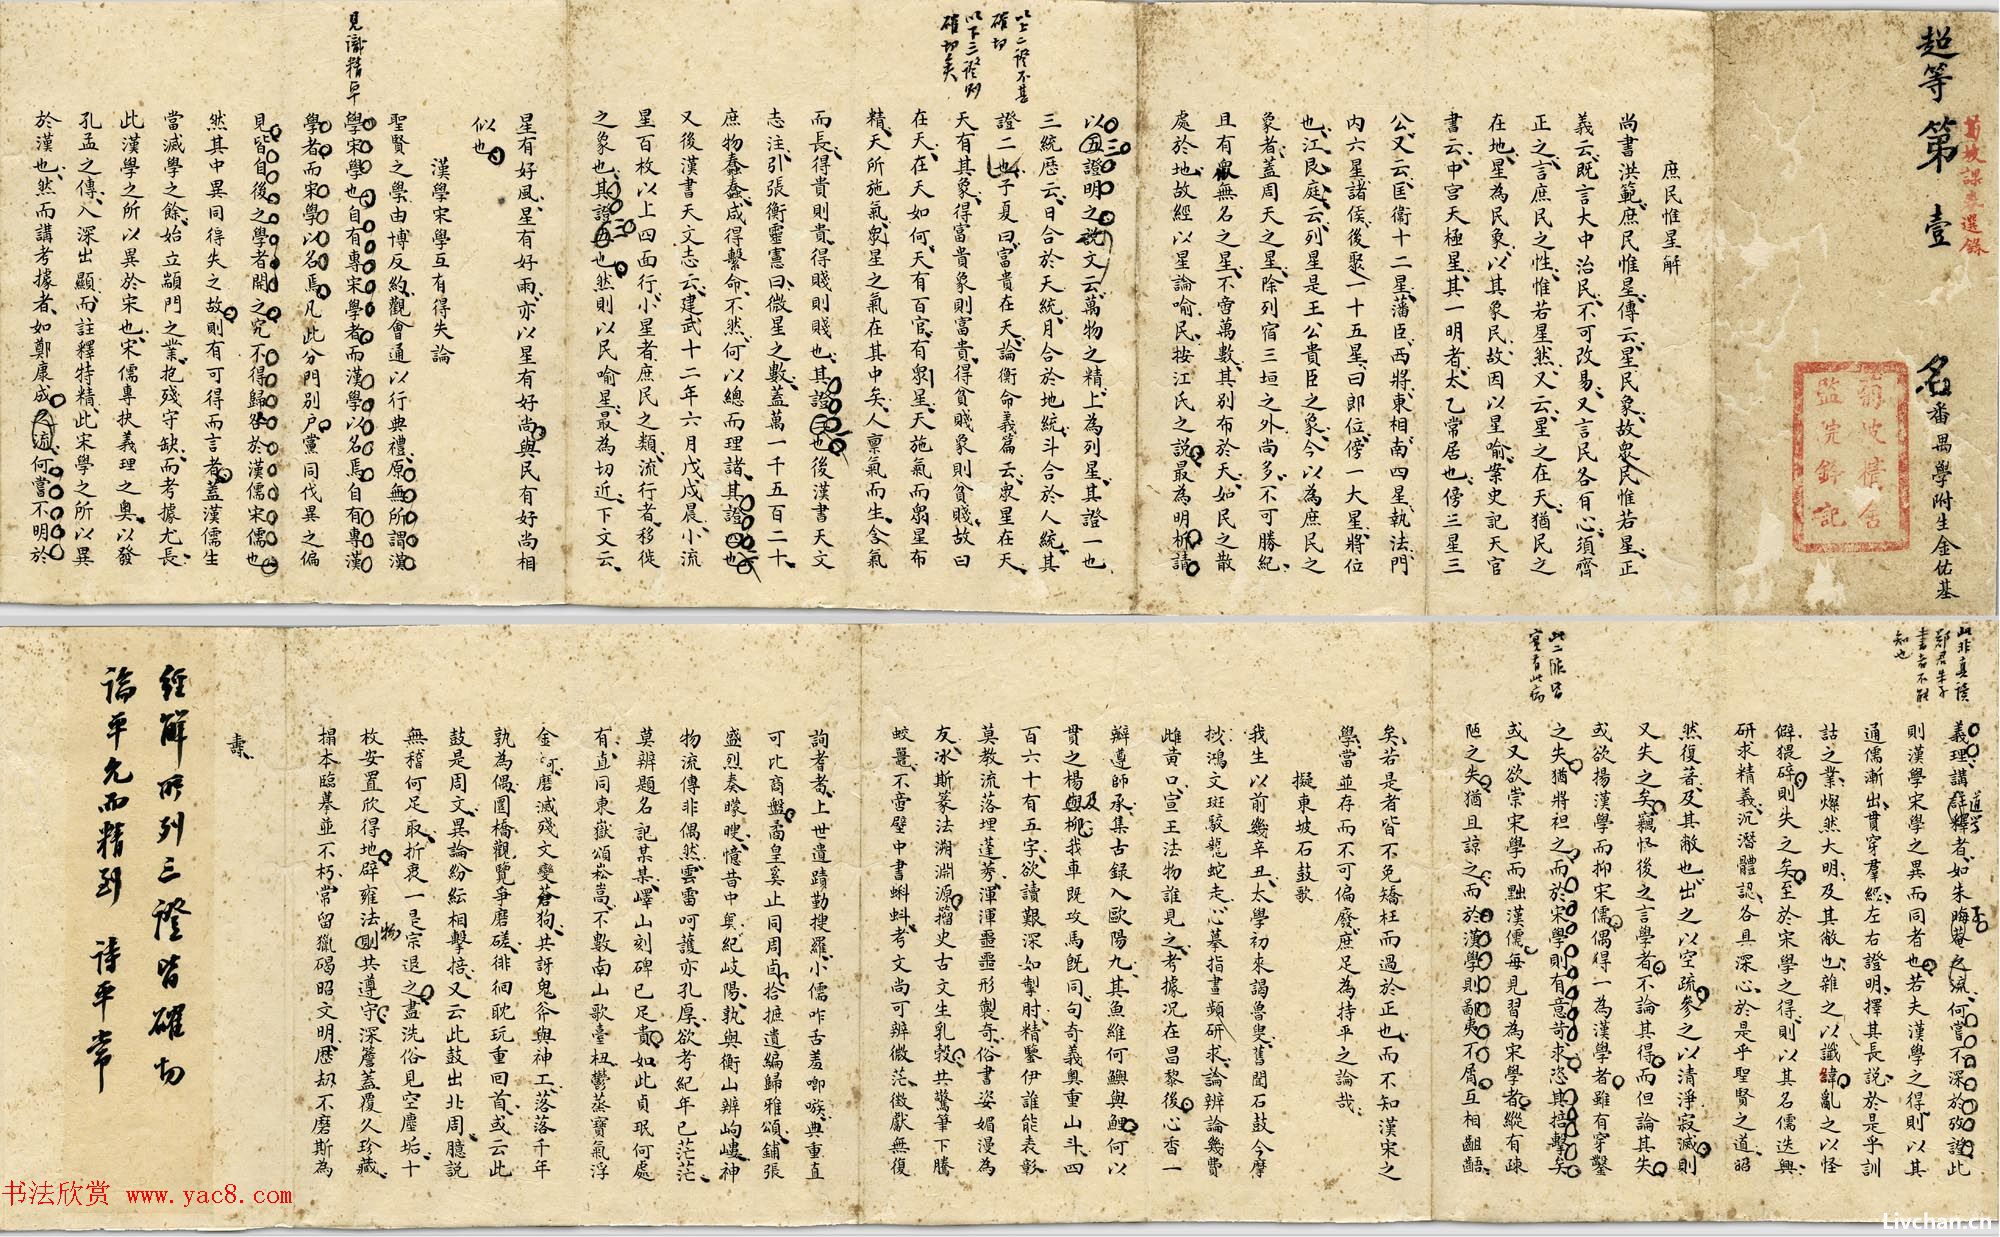 超等第壹名番禺學附生金佑基
菊坡課卷選錄
菊坡精舍
監院鈐記
庶民惟星解
尚書洪範庶民惟星傳云星民象故眾民惟若星正
義云既言大中治民不可改易又言民各有心須齊
正之言庶民之性惟若星然又云星之在天猶民之
在地星為民象以其象民故因以星喻案史記天官
書云中宮天極星其一明者太乙常居也傍三星三
公又云匡衛十二星藩臣西將東相南四星執法門
內六星諸侯後聚一十五星曰郎位傍一大星將位
也江艮庭云列星是王公貴臣之象今以為庶民之
象者蓋周天之星除列宿三垣之外尚多不可勝紀
且有眾無名之星不啻萬數其別布於天如民之散
處於地故經以星論喻民按江氏之說最為明析請
以上二證不甚
確切
以下三證則
確切矣
以五證明之說文云萬物之精上為列星其證一也
三統歷云日合於天統月合於地統斗合於人統其
證二也子夏曰富貴在天論衡命義篇云眾星在天
天有其象得富貴象則富貴得貧賤象則貧賤故曰
在天在天如何天有百官有眾星天施氣而眾星布
精天所施氣眾星之氣在其中矣人稟氣而生含氣
而長得貴則貴得賤則賤也其證三也後漢書天文
志注引張衡靈憲曰微星之數蓋萬一千五百二十
庶物蠢蠢咸得繫命不然何以總而理諸其證四也
又後漢書天文志云建武十二年六月戊戌晨小流
星百枚以上四面行小星者庶民之類流行者移徙
之象也其證五也然則以民喻星最為切近下文云
星有好風星有好雨亦以星有好尚與民有好尚相
似也
漢學宋學互有得失論
見識精卓
聖賢之學由博反約觀會通以行典禮原無所謂漢
學宋學也自有專宋學者而漢學以名焉自有專漢
學者而宋學以名焉凡此分門別戶黨同伐異之偏
見皆自後之學者開之究不得歸咎於漢儒宋儒也
然其中異同得失之故則有可得而言者蓋漢儒生
當滅學之餘始立顓門之業抱殘守缺而考據尤長
此漢學之所以異於宋也宋儒專抉義理之奧以發
孔孟之傳入深出顯而註釋特精此宋學之所以異
於漢也然而講考據者如鄭康成之流何嘗不明於
此非真讀
鄭君朱子
書者不能
知也
義理講註釋者如朱晦菴之流何嘗不深於攷證此
道學
則漢學宋學之異而同者也若夫漢學之得則以其
通儒漸出貫穿羣經左右證明擇其長說於是乎訓
詁之業燦然大明及其敝也雜之以讖緯亂之以怪
僻猥碎則失之矣至於宋學之得則以其名儒迭興
研求精義沉潛體認各具深心於是乎聖賢之道昭
然復著及其敝也出之以空疏參之以清淨寂滅則
又失之矣竊怪後之言學者不論其得而但論其失
或欲揚漢學而抑宋儒偶得一為漢學者雖有穿鑿
之失猶將袒之而於宋學則有意苛求恣其掊擊矣
或又欲崇宋學而黜漢儒每見習為宋學者縱有疎
陋之失猶且諒之而於漢學則鄙夷不屑互相齟齬
此二派皆
實有此病
矣若是者皆不免矯枉而過於正也而不知漢宋之
學當並存而不可偏廢庶足為持平之論哉
擬東坡石鼓歌
我生以前幾辛丑太學初來謁魯叟舊聞石鼓今摩
挱鴻文斑駮龍蛇走心摹指畫頻研求論辨論幾費
雌黃口宣王法物誰見之考據況在昌黎後心香一
瓣遵師承集古錄入歐陽九其魚維何鱮與鯉何以
貫之楊與柳我車既攻馬既同句奇義奧重山斗四
及
百六十有五字欲讀艱深如掣肘精鑒伊誰能表彰
莫教流落埋蓬莠渾渾噩噩形製奇俗書姿媚漫為
友冰斯篆法溯淵源籀史古文生乳穀共驚筆下騰
蛟鼉不啻壁中書蝌蚪考文尚可辨微茫徵獻無復
詢耆耇上世遺蹟勤搜羅小儒咋舌羞啣嗾典重直
可比商盤矞皇奚止同周卣拾摭遺編歸雅頌鋪張
盛烈奏矇瞍憶昔中興紀岐陽孰與衡山辨岣嶁神
物流傳非偶然雲雷呵護亦孔厚欲考紀年已茫茫
莫辨題名記某某嶧山刻碑已足貴如此貞珉何處
有直同東嶽頌崧嵩不數南山歌臺杻鬱蒸寶氣浮
金可磨滅殘文變蒼狗共訝鬼斧與神工落落千年
孰為偶圜橋觀覽爭磨磋徘徊耽玩重回首或云此
鼓是周文異論紛紜相擊掊又云此鼓出北周臆說
無稽何足取折衷一是宗退之盡洗俗見空塵垢十
枚安置欣得地辟雍法則共遵守深簷蓋覆久珍藏
物
搨本臨摹並不朽常留獵碣昭文明歷劫不磨斯為
壽
經解所列三證皆確切
論平允而精到 詩平常
书法欣赏 www.yac8.com
Livchan.cn